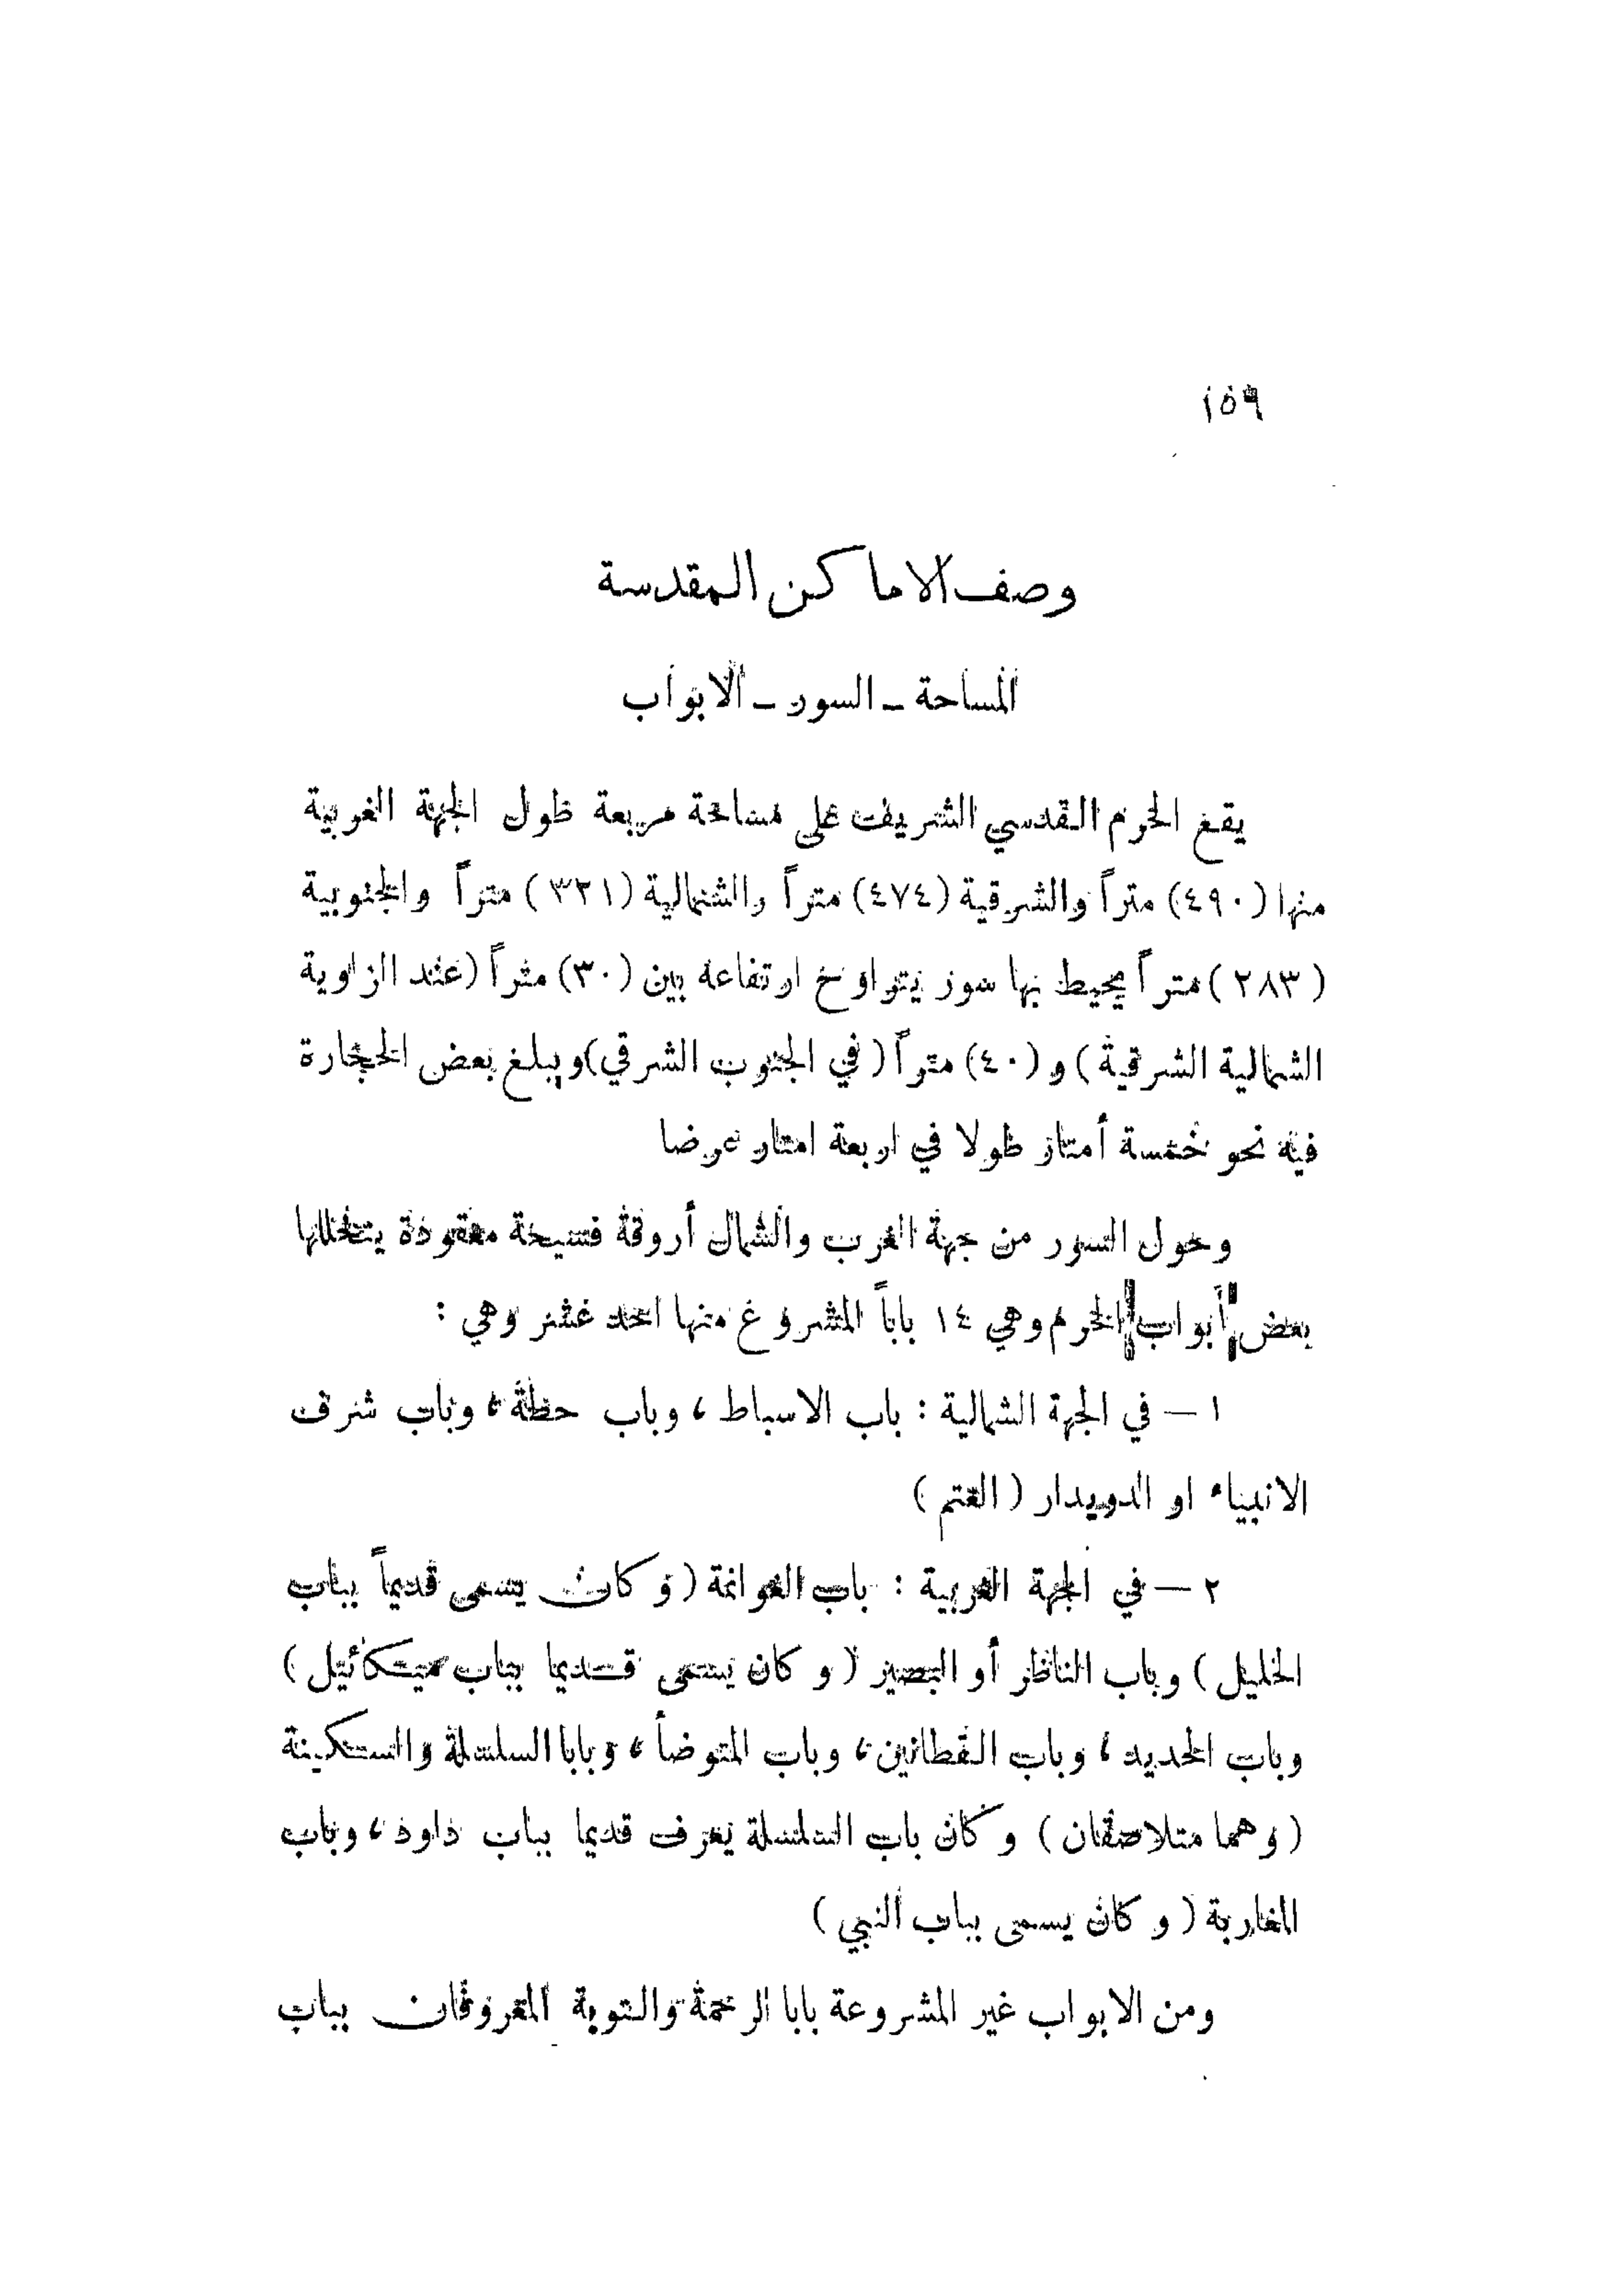 ١٥٩
وصف الاماكن المقدسة
المساحة ـ السور ـ الابواب
يقع الحرم القدسي الشريف على مساحة مربعة طول الجهة الغربية
منها (٤٩٠) متراً والشرقية (٤٧٤) متراً والشمالية (٣٢١) متراً والجنوبية
(٢٨٣) متراً يحيط بها سور يتراوح ارتفاعه بين (٣٠) متراً (عند الزاوية
الشمالية الشرقية) و (٤٠) متراً (في الجنوب الشرقي) ويبلغ بعض الحجارة
فيه نحو خمسة أمتار طولا في اربعة امتار عرضا
وحول السور من جهة الغرب والشمال أروقة فسيحة معقودة يتخللها
بعض أبواب الحرم وهي ١٤ باباً المشروع منها احد عشر وهي :
١ — في الجهة الشمالية : باب الاسباط ، وباب حطة ، وباب شرف
الانبياء او الدويدار (العتم)
٢ — في الجهة الغربية : باب الغوانمة (وكان يسمى قديماً بباب
الخليل) وباب الناظر أو البصير (وكان يسمى قديما بباب ميكائيل)
وباب الحديد ، وباب القطانين ، وباب المتوضأ ، وبابا السلسلة والسكينة
(وهما متلاصقان) وكان باب السلسلة يعرف قديما بباب داود ، وباب
المغاربة (وكان يسمى بباب النبي)
ومن الابواب غير المشروعة بابا الرحمة والتوبة المعروفان بباب